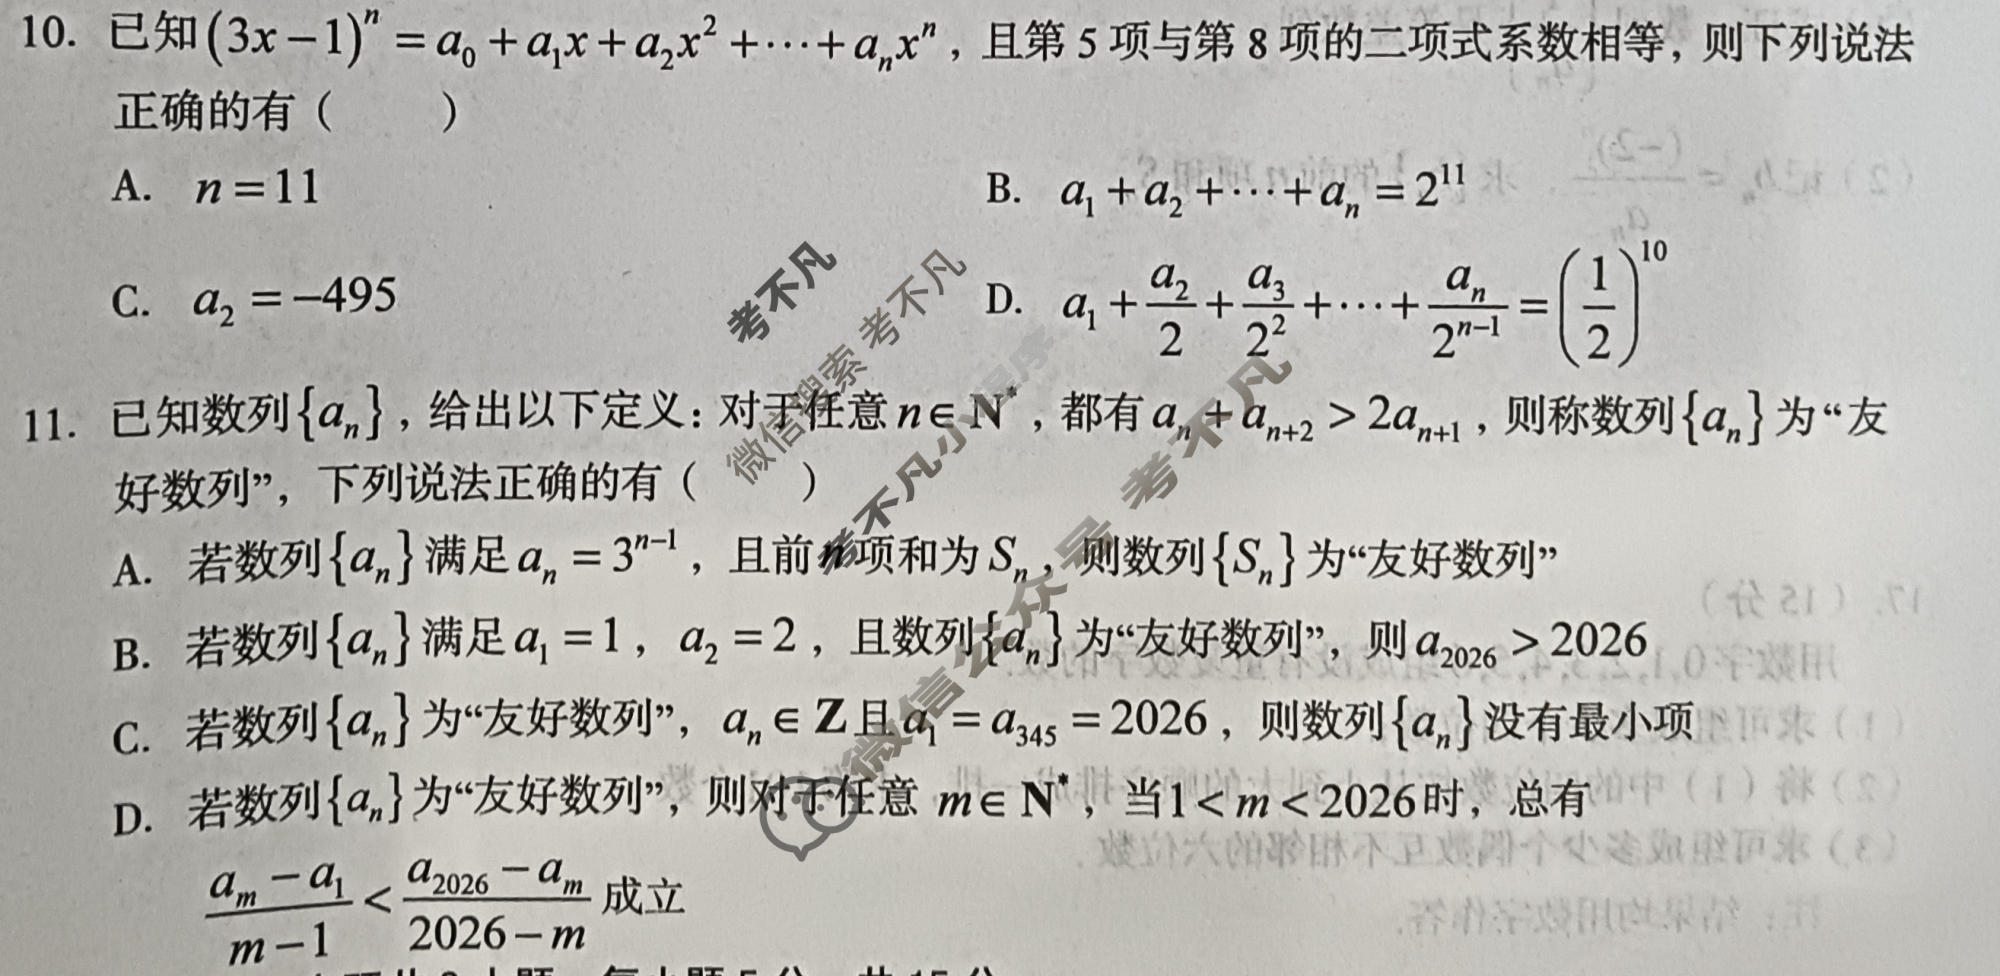 10. 已知(3x-1)^n = a_0 + a_1x + a_2x^2 + ⋯ + a_nx^n，且第 5 项与第 8 项的二项式系数相等，则下列说法
正确的有（  ）
A. n = 11 B. a_1 + a_2 + ⋯ + a_n = 2^11
C. a_2 = -495 D. a_1 + a_2/2 + a_3/2^2 + ⋯ + a_n/2^(n-1) = (1/2)^10
11. 已知数列{a_n}，给出以下定义：对于任意 n∈N*，都有 a_n + a_(n+2) > 2a_(n+1)，则称数列{a_n}为“友
好数列”，下列说法正确的有（  ）
A. 若数列{a_n}满足 a_n = 3^(n-1)，且前 n 项和为 S_n，则数列{S_n}为“友好数列”
B. 若数列{a_n}满足 a_1 = 1，a_2 = 2，且数列{a_n}为“友好数列”，则 a_2026 > 2026
C. 若数列{a_n}为“友好数列”，a_n∈Z且 a_1 = a_345 = 2026，则数列{a_n}没有最小项
D. 若数列{a_n}为“友好数列”，则对于任意 m∈N*，当1 < m < 2026时，总有
(a_m - a_1)/(m-1) < (a_2026 - a_m)/(2026-m) 成立
考不凡
微信搜索 考不凡
考不凡小程序
微信公众号 考不凡